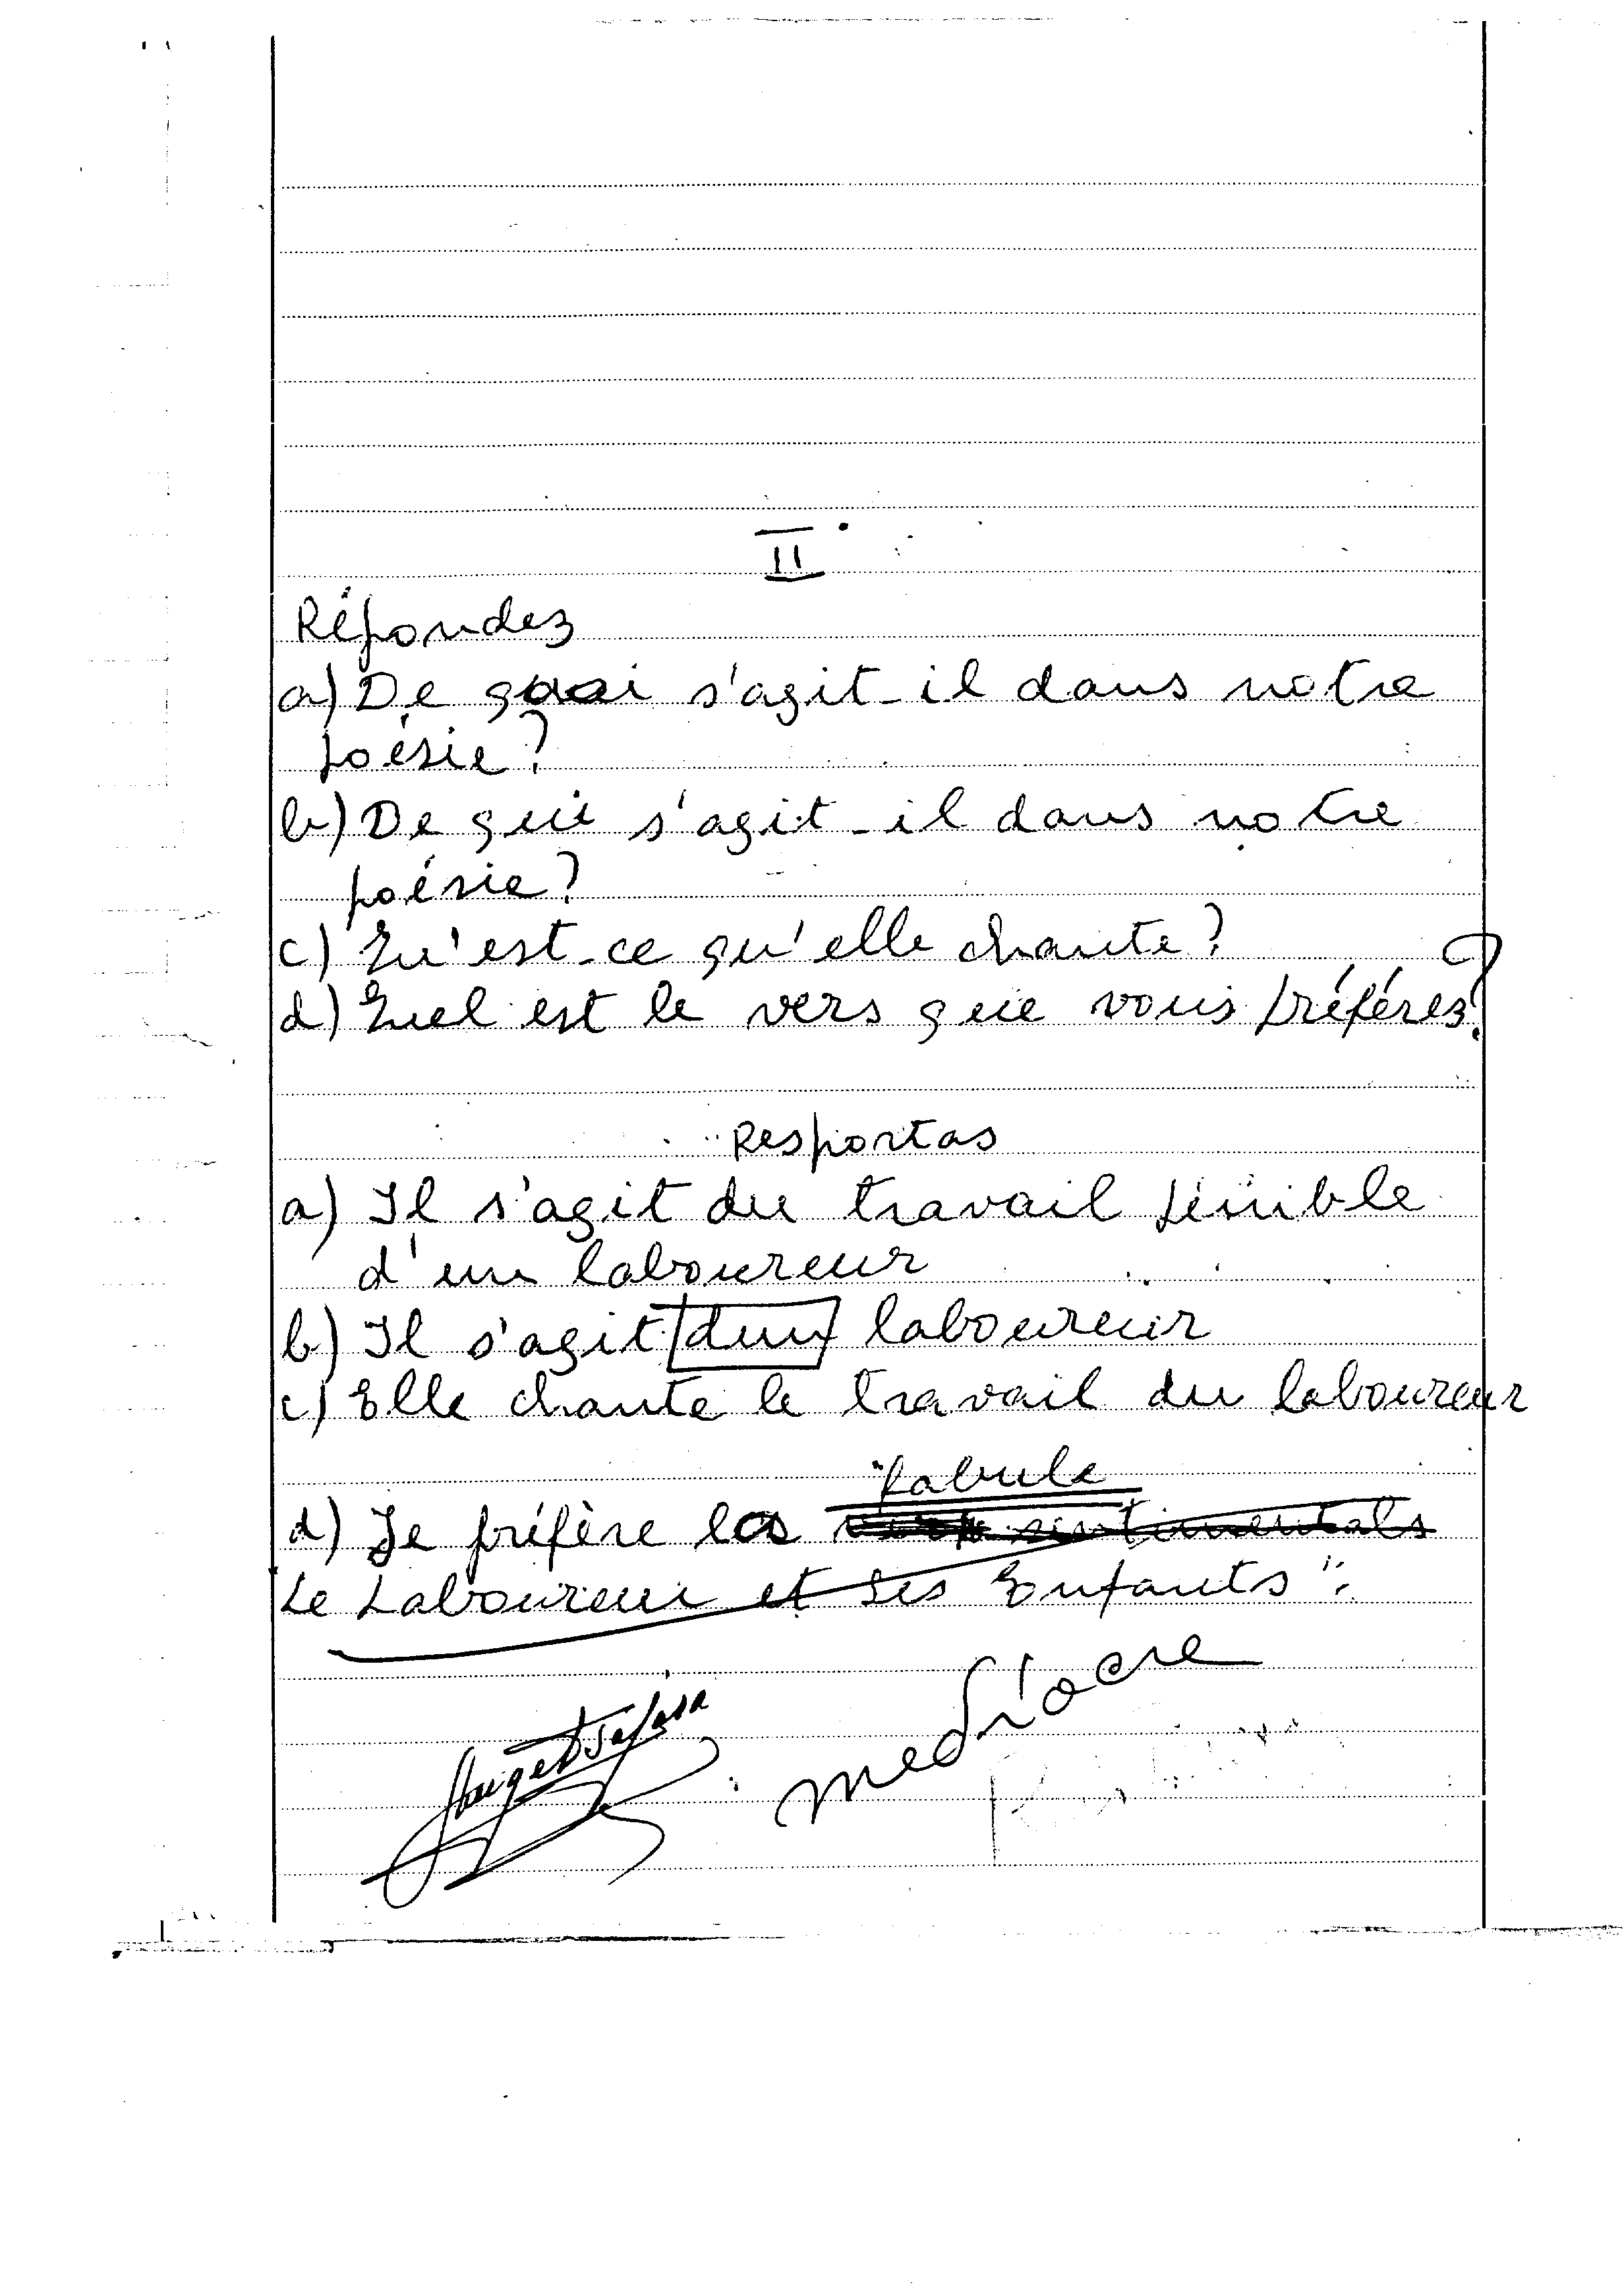 II
Répondez
a) De quoi s'agit-il dans notre
poésie?
b) De qui s'agit-il dans notre
poésie?
c) Qu'est-ce qu'elle chante?
d) Quel est le vers que vous préférez?
Resportas
a) Il s'agit du travail pénible
d'un laboureur
b) Il s'agit dun laboureur
c) Elle chante le travail du laboureur
"fabule
d) Je préfère la sentimentals
Le Laboureur et Ses Enfants".
mediocre